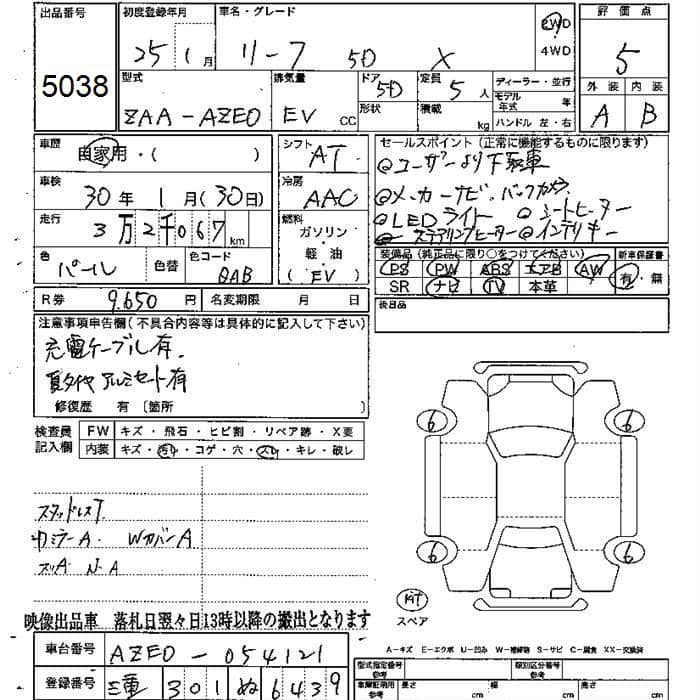 出品番号
5038
初度登録年月
25年1月
車名・グレード
リーフ 5D X
2WD
4WD
評価点
5
外装 内装
A B
型式
ZAA-AZE0
排気量
EV CC
ドア 5D
形状
定員 5人
積載 kg
ディーラー・並行
モデル年式 年
ハンドル 左・右
車歴
自家用・( )
車検
30年1月(30日)
走行
3万2千067km
色
パール
色替
色コード
QAB
シフト
AT
冷房
AAC
燃料
ガソリン・軽油
(EV)
セールスポイント(正常に機能するものに限ります)
◎ユーザーより下取車
◎メーカーナビ、バックカメラ
◎LEDライト ◎シートヒーター
◎ステアリングヒーター ◎インテリキー
装備品(純正品に限り○をつけてください)
PS PW ABS エアB AW
SR ナビ TV 本革
新車保証書
有・無
後日品
R券 9,650円
名変期限 月 日
注意事項申告欄(不具合内容等は具体的に記入して下さい)
充電ケーブル有.
夏タイヤ アルミセット有
修復歴 有〔箇所 〕
検査員記入欄
FW キズ・飛石・ヒビ割・リペア跡・X要
内装 キズ・汚れ・コゲ・穴・スレ・キレ・破レ
スタッドレスT
ミラーA WカバーA
A N-A
6
6
6
6
スペア
映像出品車 落札日翌々日13時以降の搬出となります
車台番号
AZE0-054121
登録番号
三重 301 ぬ 6439
A-キズ E-エクボ U-凹み W-補修跡 S-サビ C-腐食 XX-交換済
型式指定番号
参考
類別区分番号
車庫証明用
参考
長さ cm
幅 cm
高さ cm